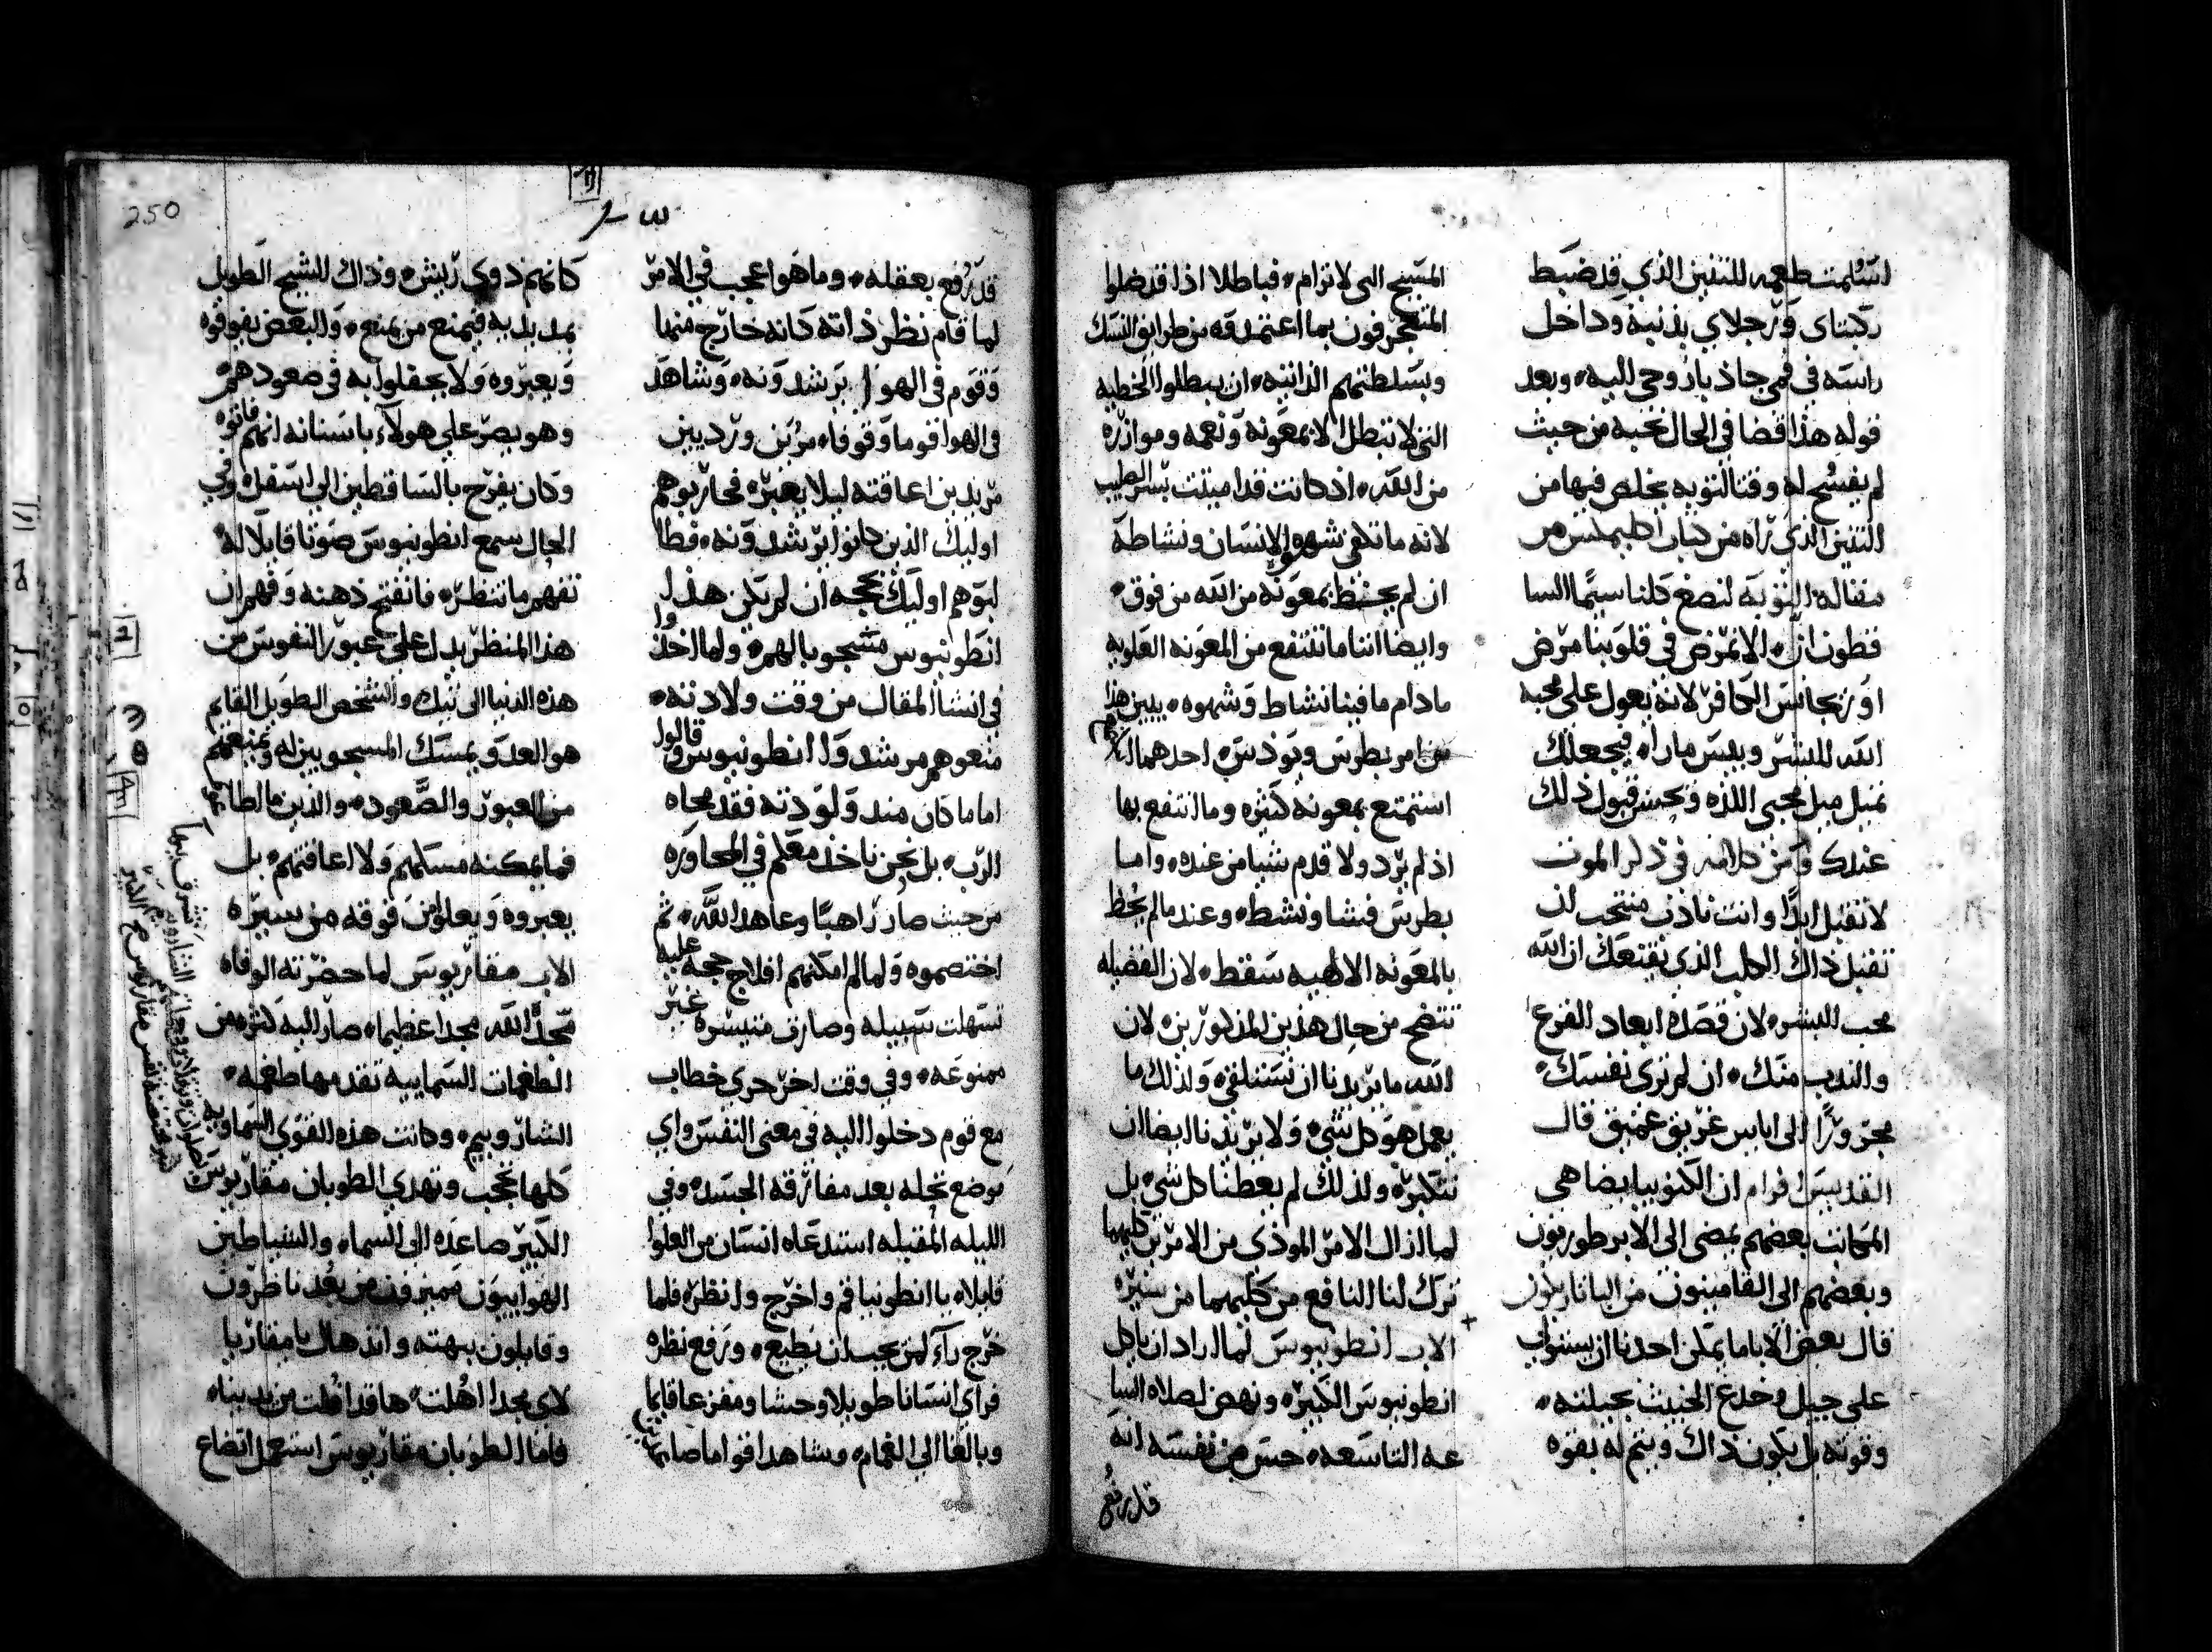 اسلمت طعمه للتنين الذي قد ضبط
ركبناى وَرجلاي بذنبه وداخل
راسه فى فمي جاذبا روحي اليه وبعد
قوله هذا قضا في الحال نحبه من حيث
لم يفسح له وقتا لتوبه يخلص فيها من
التنين الذي راه من كتاب اكليمكس من
مقاله التوبة لنصغ كلنا سيَّما السا
قطون ان لا نمرض في قلوبنا مرض
اوريجانس الكافر لانه يعول على محبه
الله للبشر وبيس ماراه فيجعلك
تميل ميل محبي اللذه وتحسن قبول ذلك
عندك وامن كلامه في ذكر الموت
لا تقبل ابدًا وانت نادب منتحب لن
تقبل ذاك الكلب الذي يقنعك ان الله
محب للبشر لان قصده ابعاد الفزع
والندب منك ان لم ترى نفسك
مجزوزًا الى اياس غريق عميق قال
القديس افرام ان الكنوبيا يضاهي
المكانت بعضهم يمضي الى الابرطوريون
وبعضهم الى القامينون من اليانارلون
قال بعض الاباما يمكن احدنا ان يستولي
على جيل وخدع الخبيث بحيلته
وقوته بل يكون ذاك ويتم له بقوه
المسيح التي لا ترام فباطلا اذا قد ضلوا
المتعجرفون بما اعتمدوه من طرايق النسك
وبسلطتهم الذاتيه ان يبطلوا الخطيه
التي لا تبطل الا بمعونه ونعمه وموازره
من الله اذ كانت قد اميتت بسر الصليب
لانه ما تكفي شهوه الانسان ونشاطه
ان لم يحتظ بمعونه من الله من فوق
وايضا اننا ما ننتفع من المعونه العلويه
مادام ما فينا نشاط وشهوه يبين هذا
من امر بطرس ويوذس احدهما
استمتع بمعونه كثيره وما انتفع بها
اذ لم يرد ولا قدم شيا من عنده واما
بطرس فشا ونشط وعندما لم يحظ
بالمعونه الالهيه سقط لان الفضيله
تتضح من حال هذين المذكورين لان
الله ما يريدنا ان نستلقي ولذلك ما
يعمل هو كل شي ولا يريدنا ايضا ان
نتكبر ولذلك لم يعطنا كل شي بل
لما ازال الامر الموذي من الامرين كليهما
ترك لنا النافع من كليهما من سيره
الاب انطونيوس لما اراد ان ياكل
انطونيوس الكبير ونهض لصلاه السا
عه التاسعه حس من نفسه انه
قد رفع
250
قد رُفع بعقله وما هو اعجب في الامر
لما قام نظر ذاته كانه خارج منها
وقوم في الهوا يرشدونه وشاهد
في الهوا قوما وقوفا مرين ورديين
مريدين اعاقته ليلا يعبر فحاربوهم
اوليك الذين كانوا يرشدونه فطا
لبوهم اوليك بحجه ان لم يكن هذا
انطونيوس مشجوبا لهم ولما اخذوا
في انشا المقال من وقت ولادته
منعوهم مرشدوا انطونيوس وقالوا
اما ما كان منذ ولودته فقد محاه
الرب بل نحن ناخذ معكم في المحاوره
من حيث صار راهبًا وعاهد الله ثم
اختصموه ولما لم امكنهم افلاج حجه عليه
تسهلت سبيله وصارت متيسره غير
ممنوعه وفي وقت اخر جري خطاب
مع قوم دخلوا اليه في معنى النفس واي
موضع تحله بعد مفارقه الجسد وفي
الليله المقبله استدعاه انسان من العلوا
قايلا يا انطونيا قم واخرج وانظر فلما
خرج راء لمن يجب ان يطيع ورفع نظره
فراى انسانا طويلا وحشا ومفزعا قايما
وبالغا الي الغمام وشاهد اقواما صايرين
كانهم ذوي ريش وذاك الشيخ الطويل
يمد يديه فيمنع من يمنع والبعض يفوقوه
ويعبروه ولا يحفلوا به في صعودهم
وهو يصر علي هولآء باسنانه انهم فاتوه
وكان يفرح بالساقطين الي اسفل وفي
الحال سمع انطونيوس صوتا قايلا له
تفهم ما تنظر فانفتح ذهنه وفهم ان
هذا المنظر يدل علي عبور النفوس من
هذه الدنيا الى تيك والشخص الطويل القايم
هو العدو يمسك المسجوبين له ويمنعهم
من العبور والصعود والذين ما اطاعوه
فما يمكنه مسكهم ولا اعاقتهم بل
يعبروه ويعلوا من فوقه من سيره
الاب مقاريوس لما حضرته الوفاه
مجّد الله مجدا عظيما صار اليه كثره من
الطغمات السماييه تقدمها طغمه
الشاروبيم وكانت هذه القوى السماويه
كلها تحجب وتهدي الطوبان مقاريوس
الكبير صاعده الى السماء والشياطين
الهواييون مميزون من بعد ناظرون
وقايلون ببهته واندهال يا مقاريا
لاي مجدا اهلت ها قد افلت من يدينا
فاما الطوبان مقاريوس استعمل اتضاع